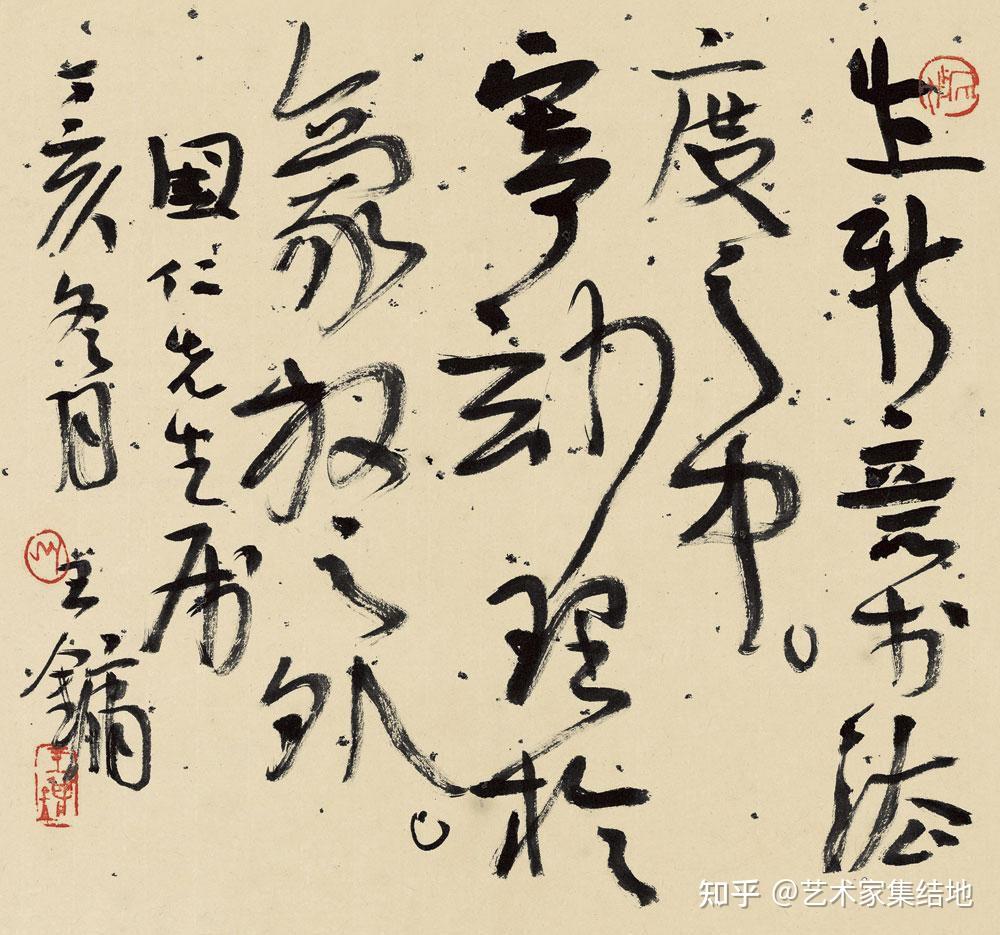 出新意於法
度之中
寄玅理於
豪放之外
國仁先生属
丁亥冬月王鏞
知乎 @艺术家集结地